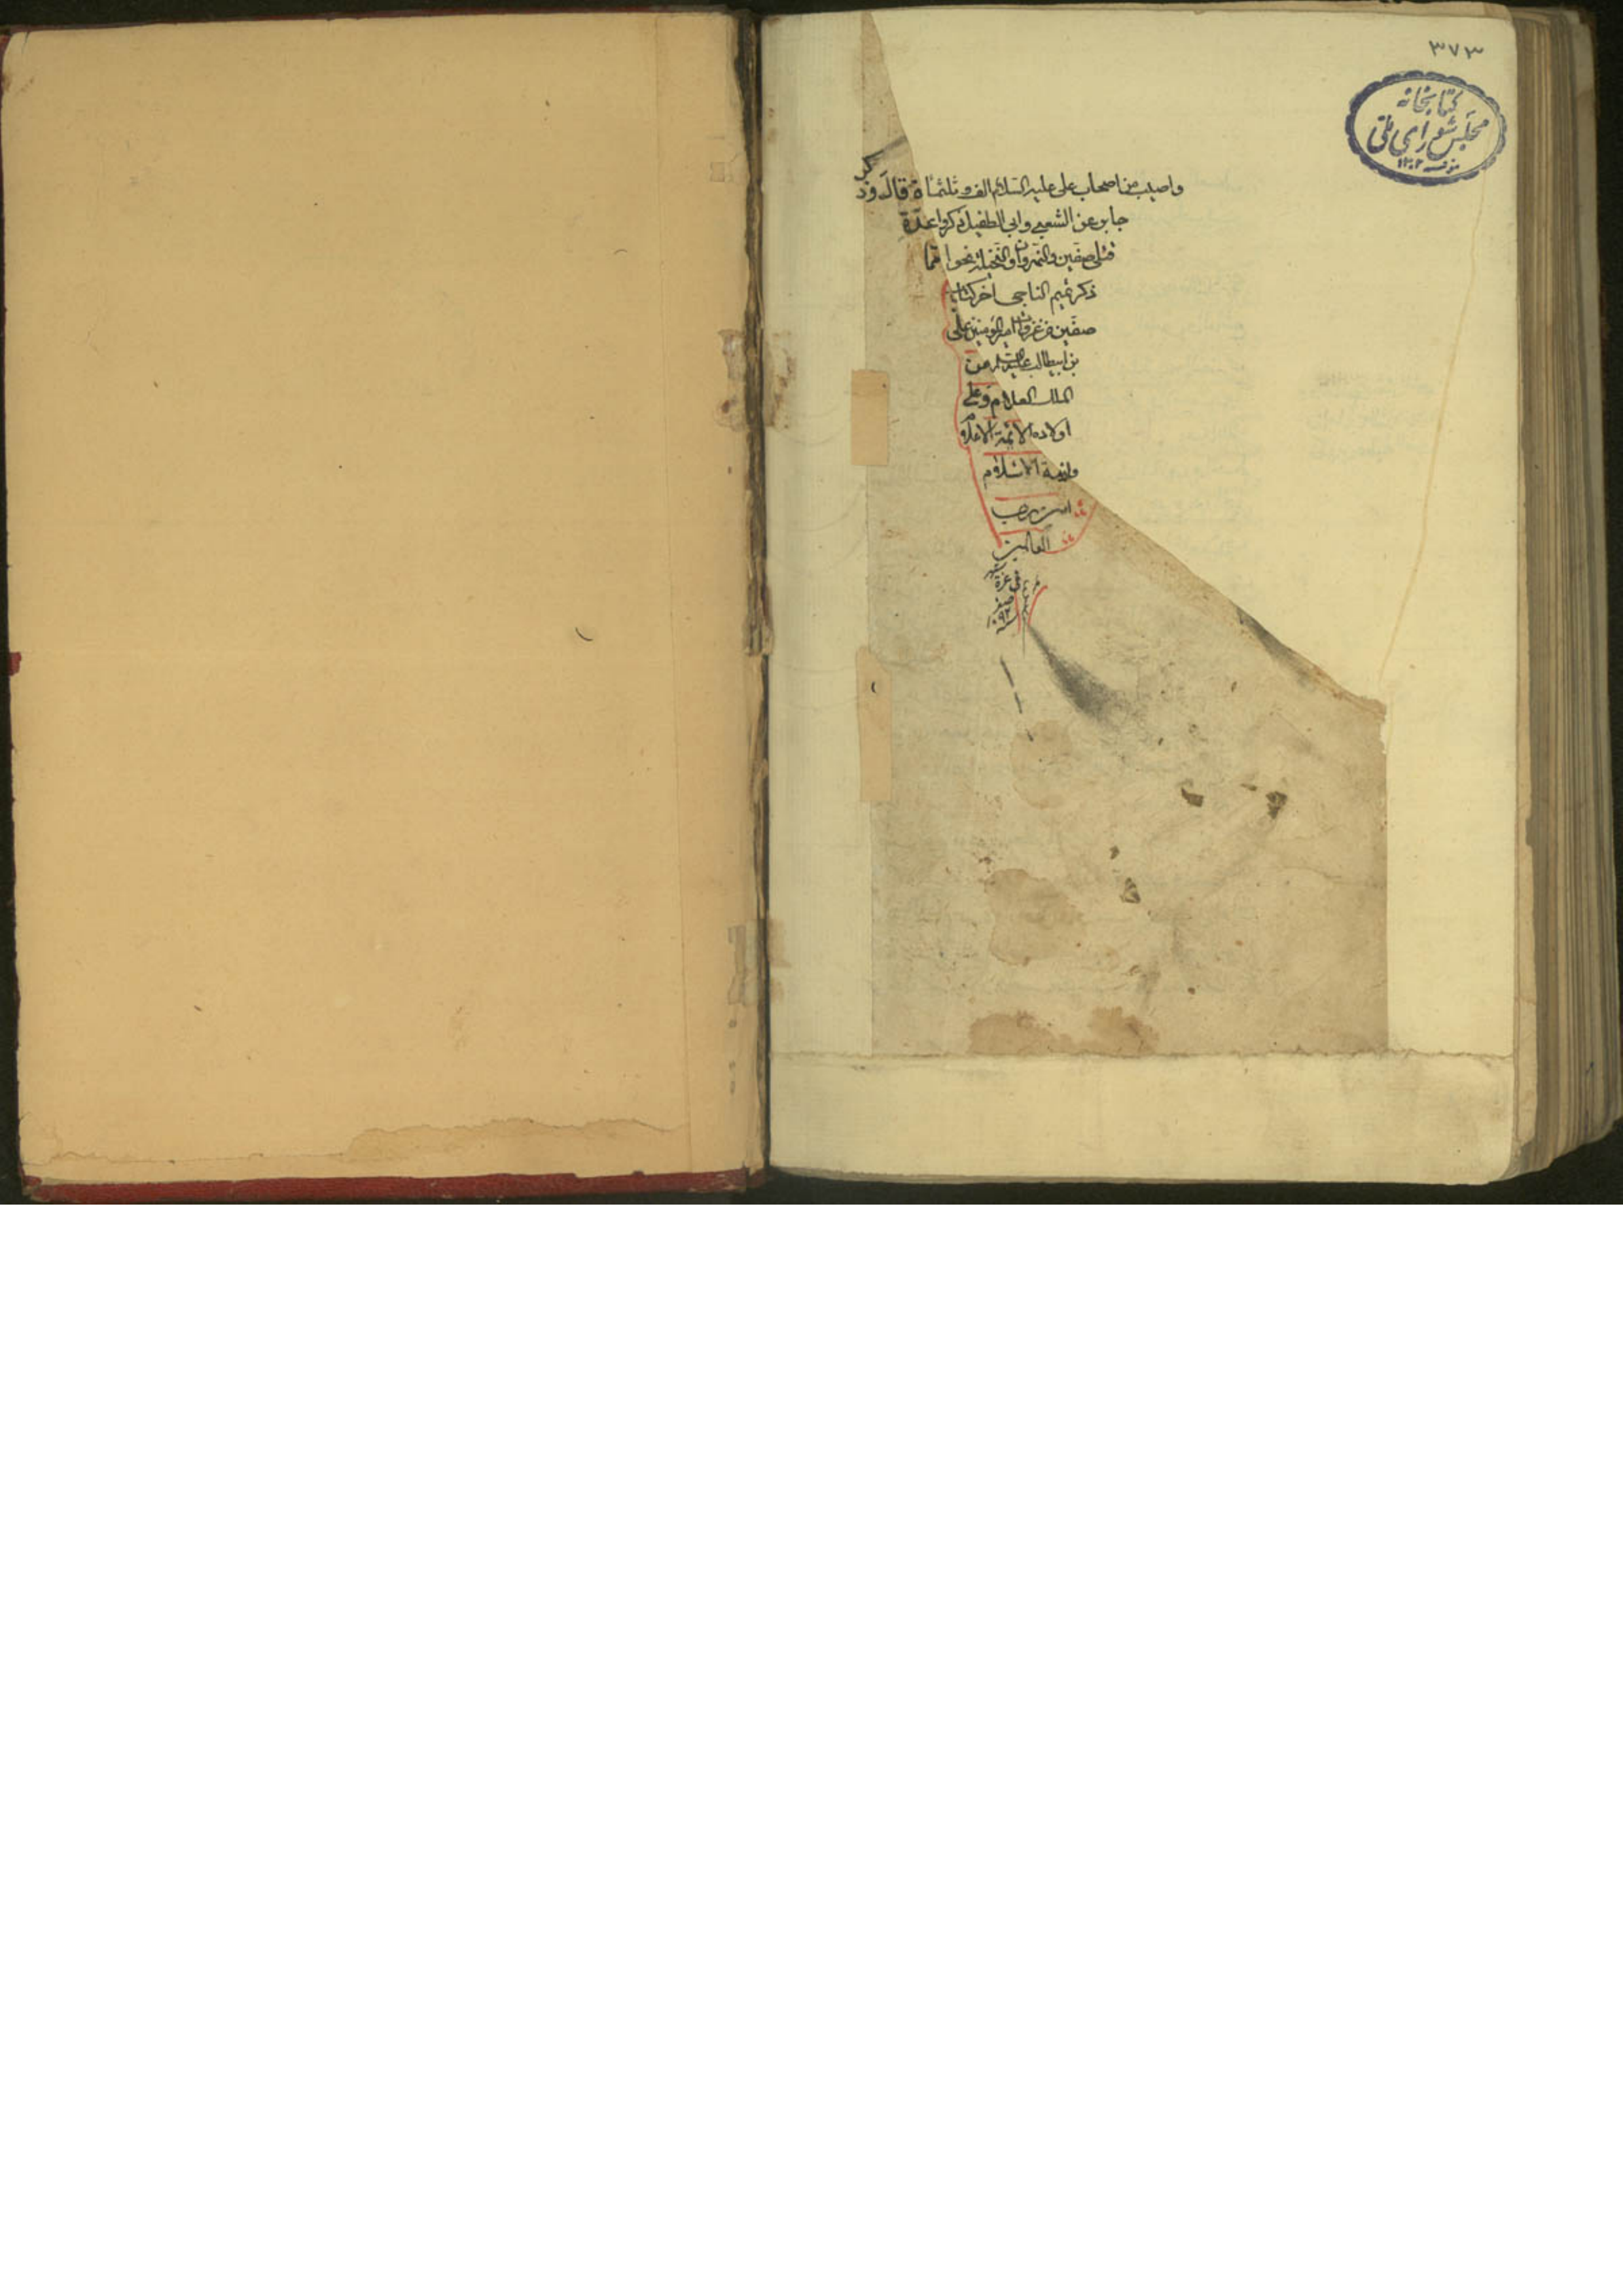 ٣٧٣
كتابخانه
مجلس شورای ملی
واصيب من اصحاب على عليه السلام الف و ثلثمأة قال وذكر
جابر عن الشعبى و ابى الطفيل ذكروا عدة
قتلى صفين والنهروان والنخيلة نحوا مما
ذكر تميم الناجى اخر كتاب
صفين من غزوات امير المؤمنين على
بن ابيطالب عليه السلام من
الملك العلام وعلى
اولاده الائمة الاعلام
وائمة الاسلام
امين رب
العالمين
فى غرة شهر
صفر
سنه ١٠٩٢